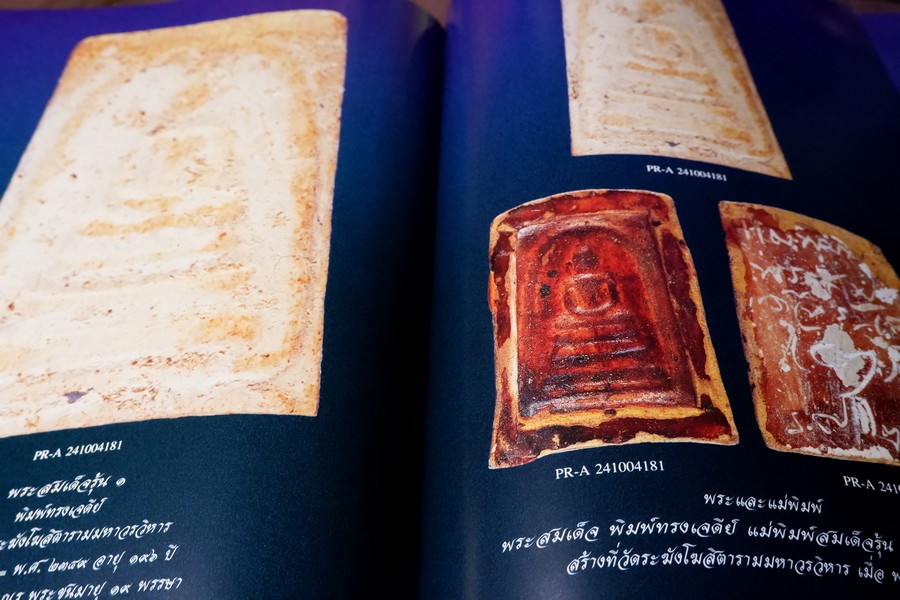 PR-A 241004181
พระสมเด็จรุ่น ๑
พิมพ์ทรงเจดีย์
ระฆังโฆสิตารามมหาวรวิหาร
พ.ศ. ๒๓๔๙ อายุ ๑๙๖ ปี
พระชนมายุ ๑๙ พรรษา
PR-A 241004181
PR-A 241004181
PR-A 2410
พระและแม่พิมพ์
พระสมเด็จ พิมพ์ทรงเจดีย์ แม่พิมพ์สมเด็จรุ่น
สร้างที่วัดระฆังโฆสิตารามมหาวรวิหาร เมื่อ พ